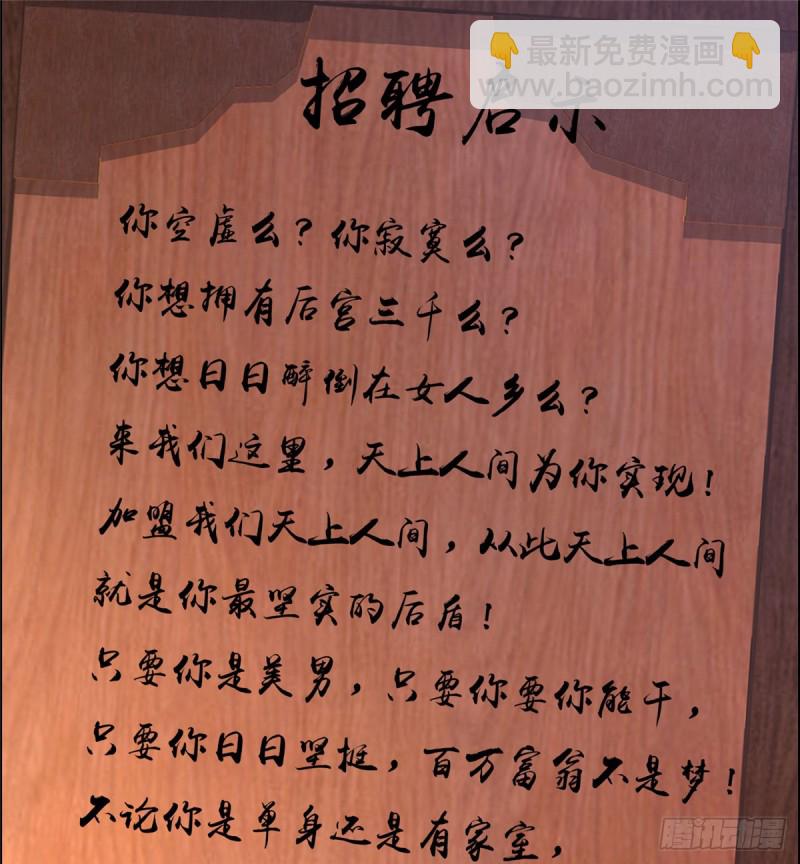 最新免费漫画
www.baozimh.com
招聘启示
你空虚么？你寂寞么？
你想拥有后宫三千么？
你想日日醉倒在女人乡么？
来我们这里，天上人间为你实现！
加盟我们天上人间，从此天上人间
就是你最坚实的后盾！
只要你是美男，只要你要你能干，
只要你日日坚挺，百万富翁不是梦！
不论你是单身还是有家室，
腾讯动漫